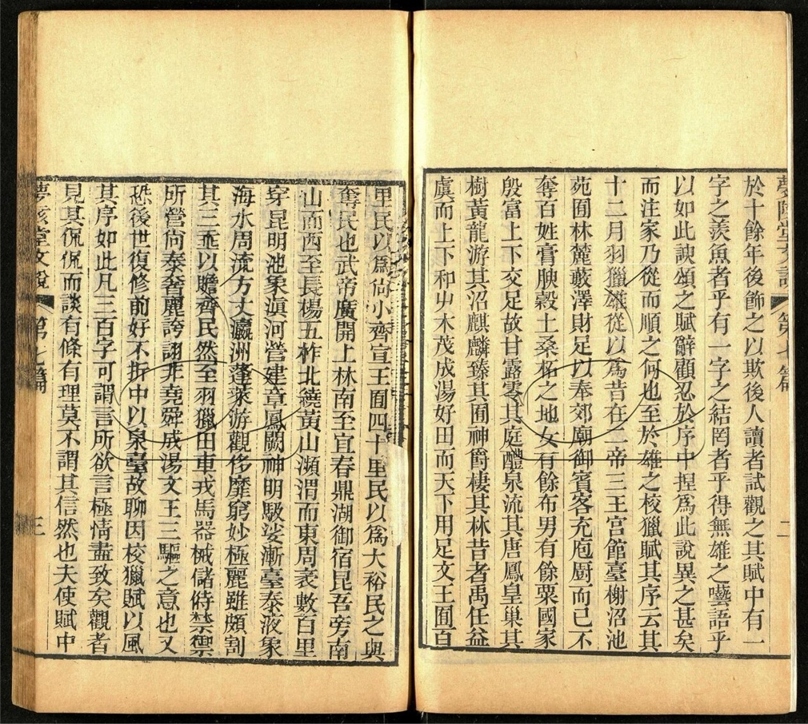 於十餘年後飾之以欺後人讀者試觀之其賦中有一
字之羨魚者乎有一字之結罔者乎得無雄之囈語乎
以如此諛頌之賦辭顧忍於序中捏爲此說異之甚矣
而注家乃從而順之何也至於雄之校獵賦其序云其
十二月羽獵雄從以爲昔在二帝三王宮館臺榭沼池
苑囿林麓藪澤財足以奉郊廟御賓客充庖厨而已不
奪百姓膏腴穀土桑柘之地女有餘布男有餘粟國家
殷富上下交足故甘露零其庭醴泉流其唐鳳皇巢其
樹黃龍游其沼麒麟臻其囿神爵棲其林昔者禹任益
虞而上下和屮木茂成湯好田而天下用足文王囿百
里民以爲尙小齊宣王囿四十里民以爲大裕民之與
奪民也武帝廣開上林南至宜春鼎湖御宿昆吾旁南
山而西至長楊五柞北繞黃山瀕渭而東周袤數百里
穿昆明池象滇河營建章鳳闕神明馺娑漸臺泰液象
海水周流方丈瀛洲蓬萊游觀侈靡窮妙極麗雖頗割
其三垂以贍齊民然至羽獵田車戎馬器械儲偫禁禦
所營尙泰奢麗誇詡非堯舜成湯文王三驅之意也又
恐後世復修前好不折中以泉臺故聊因校獵賦以風
其序如此凡三百字可謂言所欲言極情盡致矣觀者
見其侃侃而談有條有理莫不謂其信然也夫使賦中
夢陔堂文說
第七篇
三